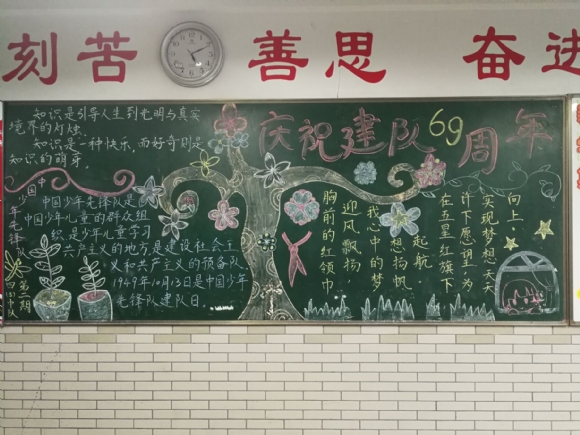 刻苦 善思 奋进
庆祝建队69周年
知识是引导人生到光明与真实
境界的灯烛
知识是一种快乐,而好奇则是
知识的萌芽
中国少年先锋队
中国少年先锋队是
中国少年儿童的群众组
织是少年儿童学习
共产主义的地方是建设社会主
义和共产主义的预备队
1949年10月13日是中国少年
先锋队建队日。
第二期
向上·
实现梦想天天
许下愿望为
在五星红旗下
起航
想扬帆
我心中的梦
迎风飘扬
胸前的红领巾